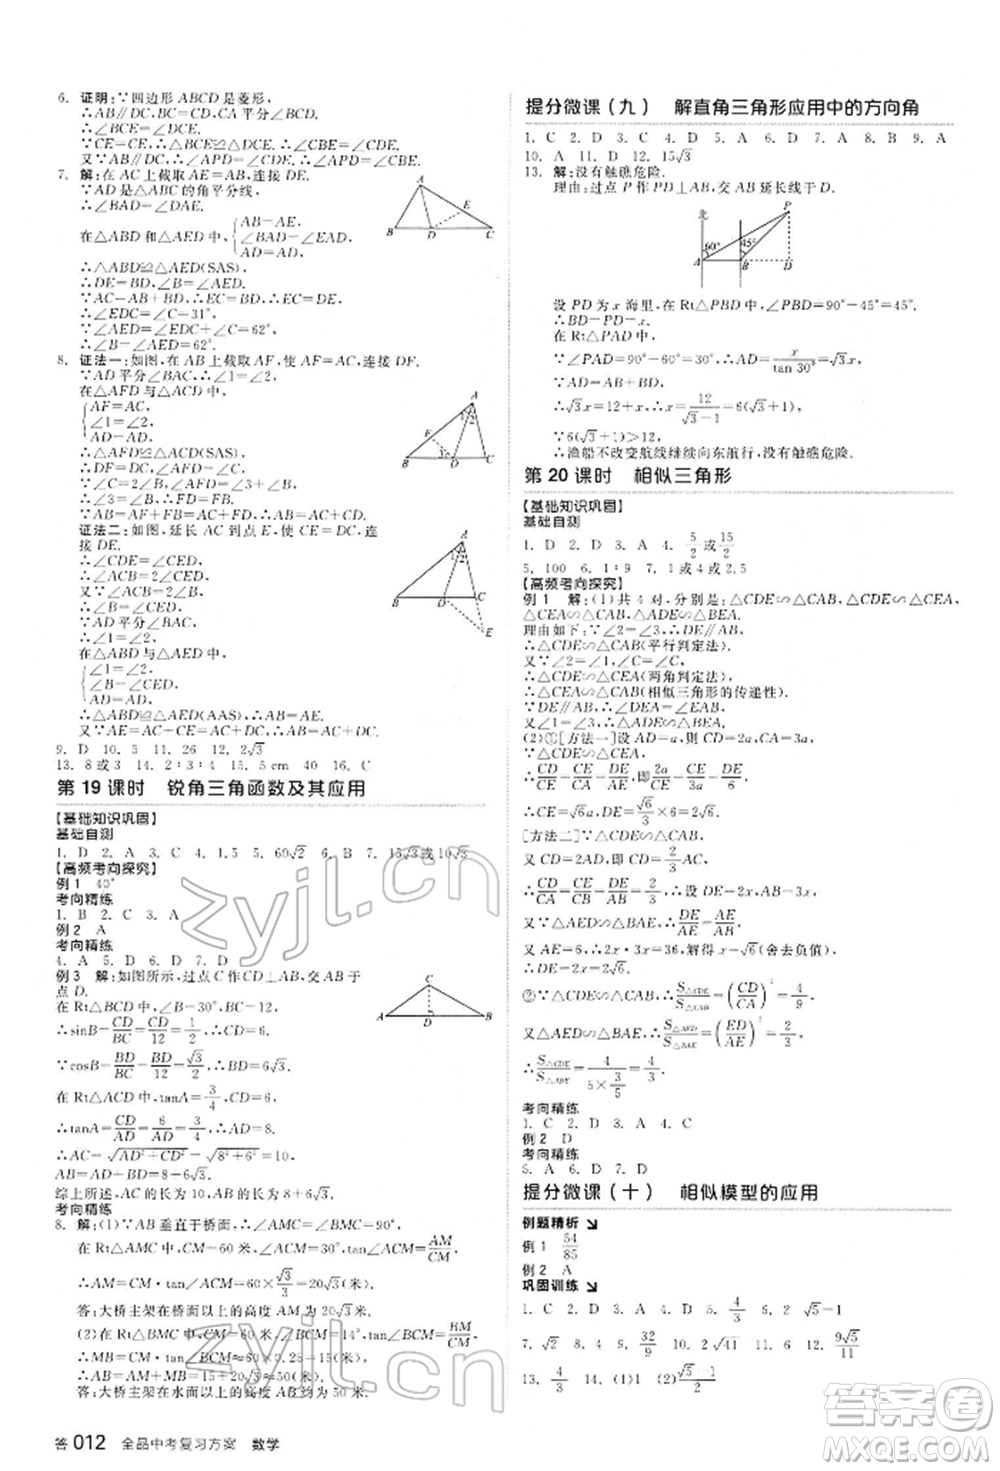 6. 证明:∵四边形ABCD是菱形,
∴AB∥DC,AB=BC=DC=AD,
∴∠DCA=∠BAC=∠ACB,
∵CE=CE,∴△BCE≌△DCE,
∴∠CDE=∠CBE.
又∵AB∥DC,∴∠CDE=∠APD,
∴∠CBE=∠APD.
7. 解:在AC上截取AE=AB,连接DE.
∵AD是△ABC的角平分线,
∴∠BAD=∠DAE.
在△ABD和△AED中,
AB=AE,
∠BAD=∠DAE,
AD=AD,
∴△ABD≌△AED(SAS).
∴DE=BD,∠B=∠AED.
∵AC-AB=BD,∴CE=BD,∴CE=DE,
∴∠EDC=∠C=31°,
∴∠AED=∠EDC+∠C=62°,
∴∠B=∠AED=62°.
8. 证法一:如图,在AB上截取AF,使AF=AC,连接DF.
∵AD平分∠BAC,∴∠1=∠2.
在△AFD与△ACD中,
AF=AC,
∠1=∠2,
AD=AD,
∴△AFD≌△ACD(SAS),
证法二:如图,延长AC到点E,使CE=CD,连接DE.
∴∠CDE=∠CED,
∴∠ACB=2∠CED.
∵∠ACB=2∠B,
∴∠B=∠CED.
∵AD平分∠BAC,
∴∠1=∠2.
在△ABD与△AED中,
∠1=∠2,
∠B=∠CED,
AD=AD,
∴△ABD≌△AED(AAS),∴AB=AE.
又∵AE=AC+CE=AC+CD,∴AB=AC+CD.
9. D 10. 5 11. 26 12. 2√3
13. 8或3 14. 2:3:4 15. 5 cm 40 16. C
第19课时 锐角三角函数及其应用
【基础知识巩固】
基础自测
1. D 2. A 3. C 4. 1.5 5. 60√2 6. B 7. 15√3或10√3
【高频考向探究】
例1 40°
考向精练
1. B 2. C 3. A
例2 A
考向精练
4. A 5. D 6. D 7. D
例3 解:如图所示,过点C作CD⊥AB,交AB于
点D.
在Rt△BCD中,∠B=30°,BC=12,
∴sinB=CD/BC=CD/12=1/2,∴CD=6.
∵cosB=BD/BC=BD/12=√3/2,∴BD=6√3.
在Rt△ACD中,tanA=3/4,
∴tanA=CD/AD=6/AD=3/4,∴AD=8.
∴AC=√(AD²+CD²)=√(8²+6²)=10,
AB=AD+BD=8+6√3.
综上所述,AC的长为10,AB的长为8+6√3.
考向精练
8. 解:(1)∵AB垂直于桥面,∴∠AMC=∠BMC=90°.
在Rt△AMC中,CM=60米,∠ACM=30°,tan∠ACM=AM/CM,
∴AM=CM·tan∠ACM=60×√3/3=20√3(米).
答:大桥主架在桥面以上的高度AM为20√3米.
(2)在Rt△BMC中,CM=60米,∠BCM=14°,tan∠BCM=BM/CM,
∴AB=AM+BM=20√3+15≈50(米).
答:大桥主架在水面以上的高度AB约为50米.
答 012 全品中考复习方案 数学
提分微课(九) 解直角三角形应用中的方向角
1. C 2. D 3. C 4. D 5. A 6. D 7. A 8. B 9. A
10. A 11. D 12. 15√3
13. 解:没有触礁危险.
理由:过点P作PD⊥AB,交AB延长线于D.
设PD为x海里,在Rt△PBD中,∠PBD=90°-45°=45°.
∴BD=PD=x.
在Rt△PAD中,
∵∠PAD=90°-60°=30°,∴AD=x/tan 30°=√3x,
∴√3x=12+x,∴x=12/(√3-1)=6(√3+1),
∵6(√3+1)>12,
∴渔船不改变航线继续向东航行,没有触礁危险.
第20课时 相似三角形
【基础知识巩固】
基础自测
1. D 2. D 3. A 4. 5/2或15/2
5. 100 6. 1:9 7. 1或4或2.5
【高频考向探究】
例1 解:(1)共4对,分别是:△CDE∽△CAB,△CDE∽△CEA,
△CEA∽△CAB,△ADE∽△BEA.
理由如下:∵∠2=∠3,∴DE∥AB,
∴△CDE∽△CAB(平行判定法).
又∵∠1=∠2,∠C=∠C,
∴△CDE∽△CEA(两角判定法).
∴△CEA∽△CAB(相似三角形的传递性).
∵DE∥AB,∴∠DEA=∠EAB,
又∵∠1=∠3,∴△ADE∽△BEA.
(2)①[方法一]:∵△CDE∽△CEA,
∴CD/CE=CE/CA,即2a/CE=CE/3a,∴CE=√6a,
∴CE=√6,∴BE=3/2×6=2√6.
[方法二]:∵△CDE∽△CAB,
又∵CD=2AD,即CD=2/3AC,
∴CD/CA=CE/CB=DE/AB=2/3,
又∵△AED∽△BAE,∴AD/BE=DE/AE=AE/AB,
又AE=6=2x·3x,解得x=√6(舍去负值),
∴BE=2√6.
②∵△CDE∽△CAB,∴S△CDE/S△CAB=(CD/CA)²=4/9,
又∵△AED∽△BAE,∴S△AED/S△BAE=(ED/AE)²=2/3,
考向精练
1. C 2. D 3. A 4. C
例2 D
考向精练
5. A 6. D 7. D
提分微课(十) 相似模型的应用
例题精析
例1 54/85
例2 A
巩固训练
1. C 2. D 3. D 4. D 5. 4/3 6. √5-1
7. √2 8. 4 9. 32/9 10. 2√41 11. 2 12. 9√5/11
13. 4/3 14. (1)4 (2)(√5-1)/2
A
B
C
D
E
A
B
C
D
北
60°
45°
P
A
B
D
zyjl.cn
zyjl.cn